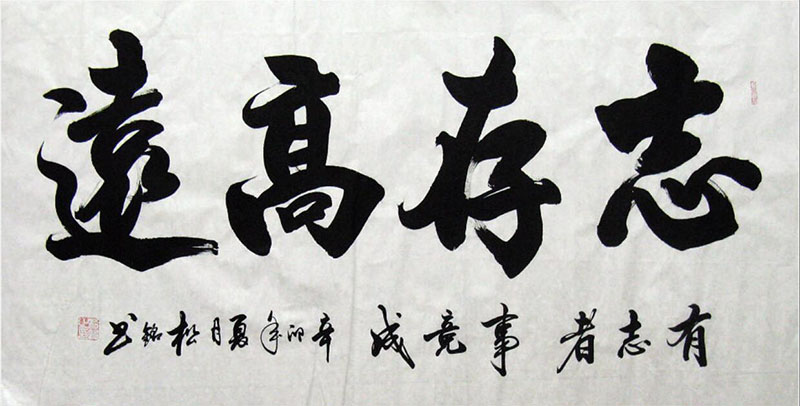 志存高遠
有志者事竞成 辛卯年夏月松銘书